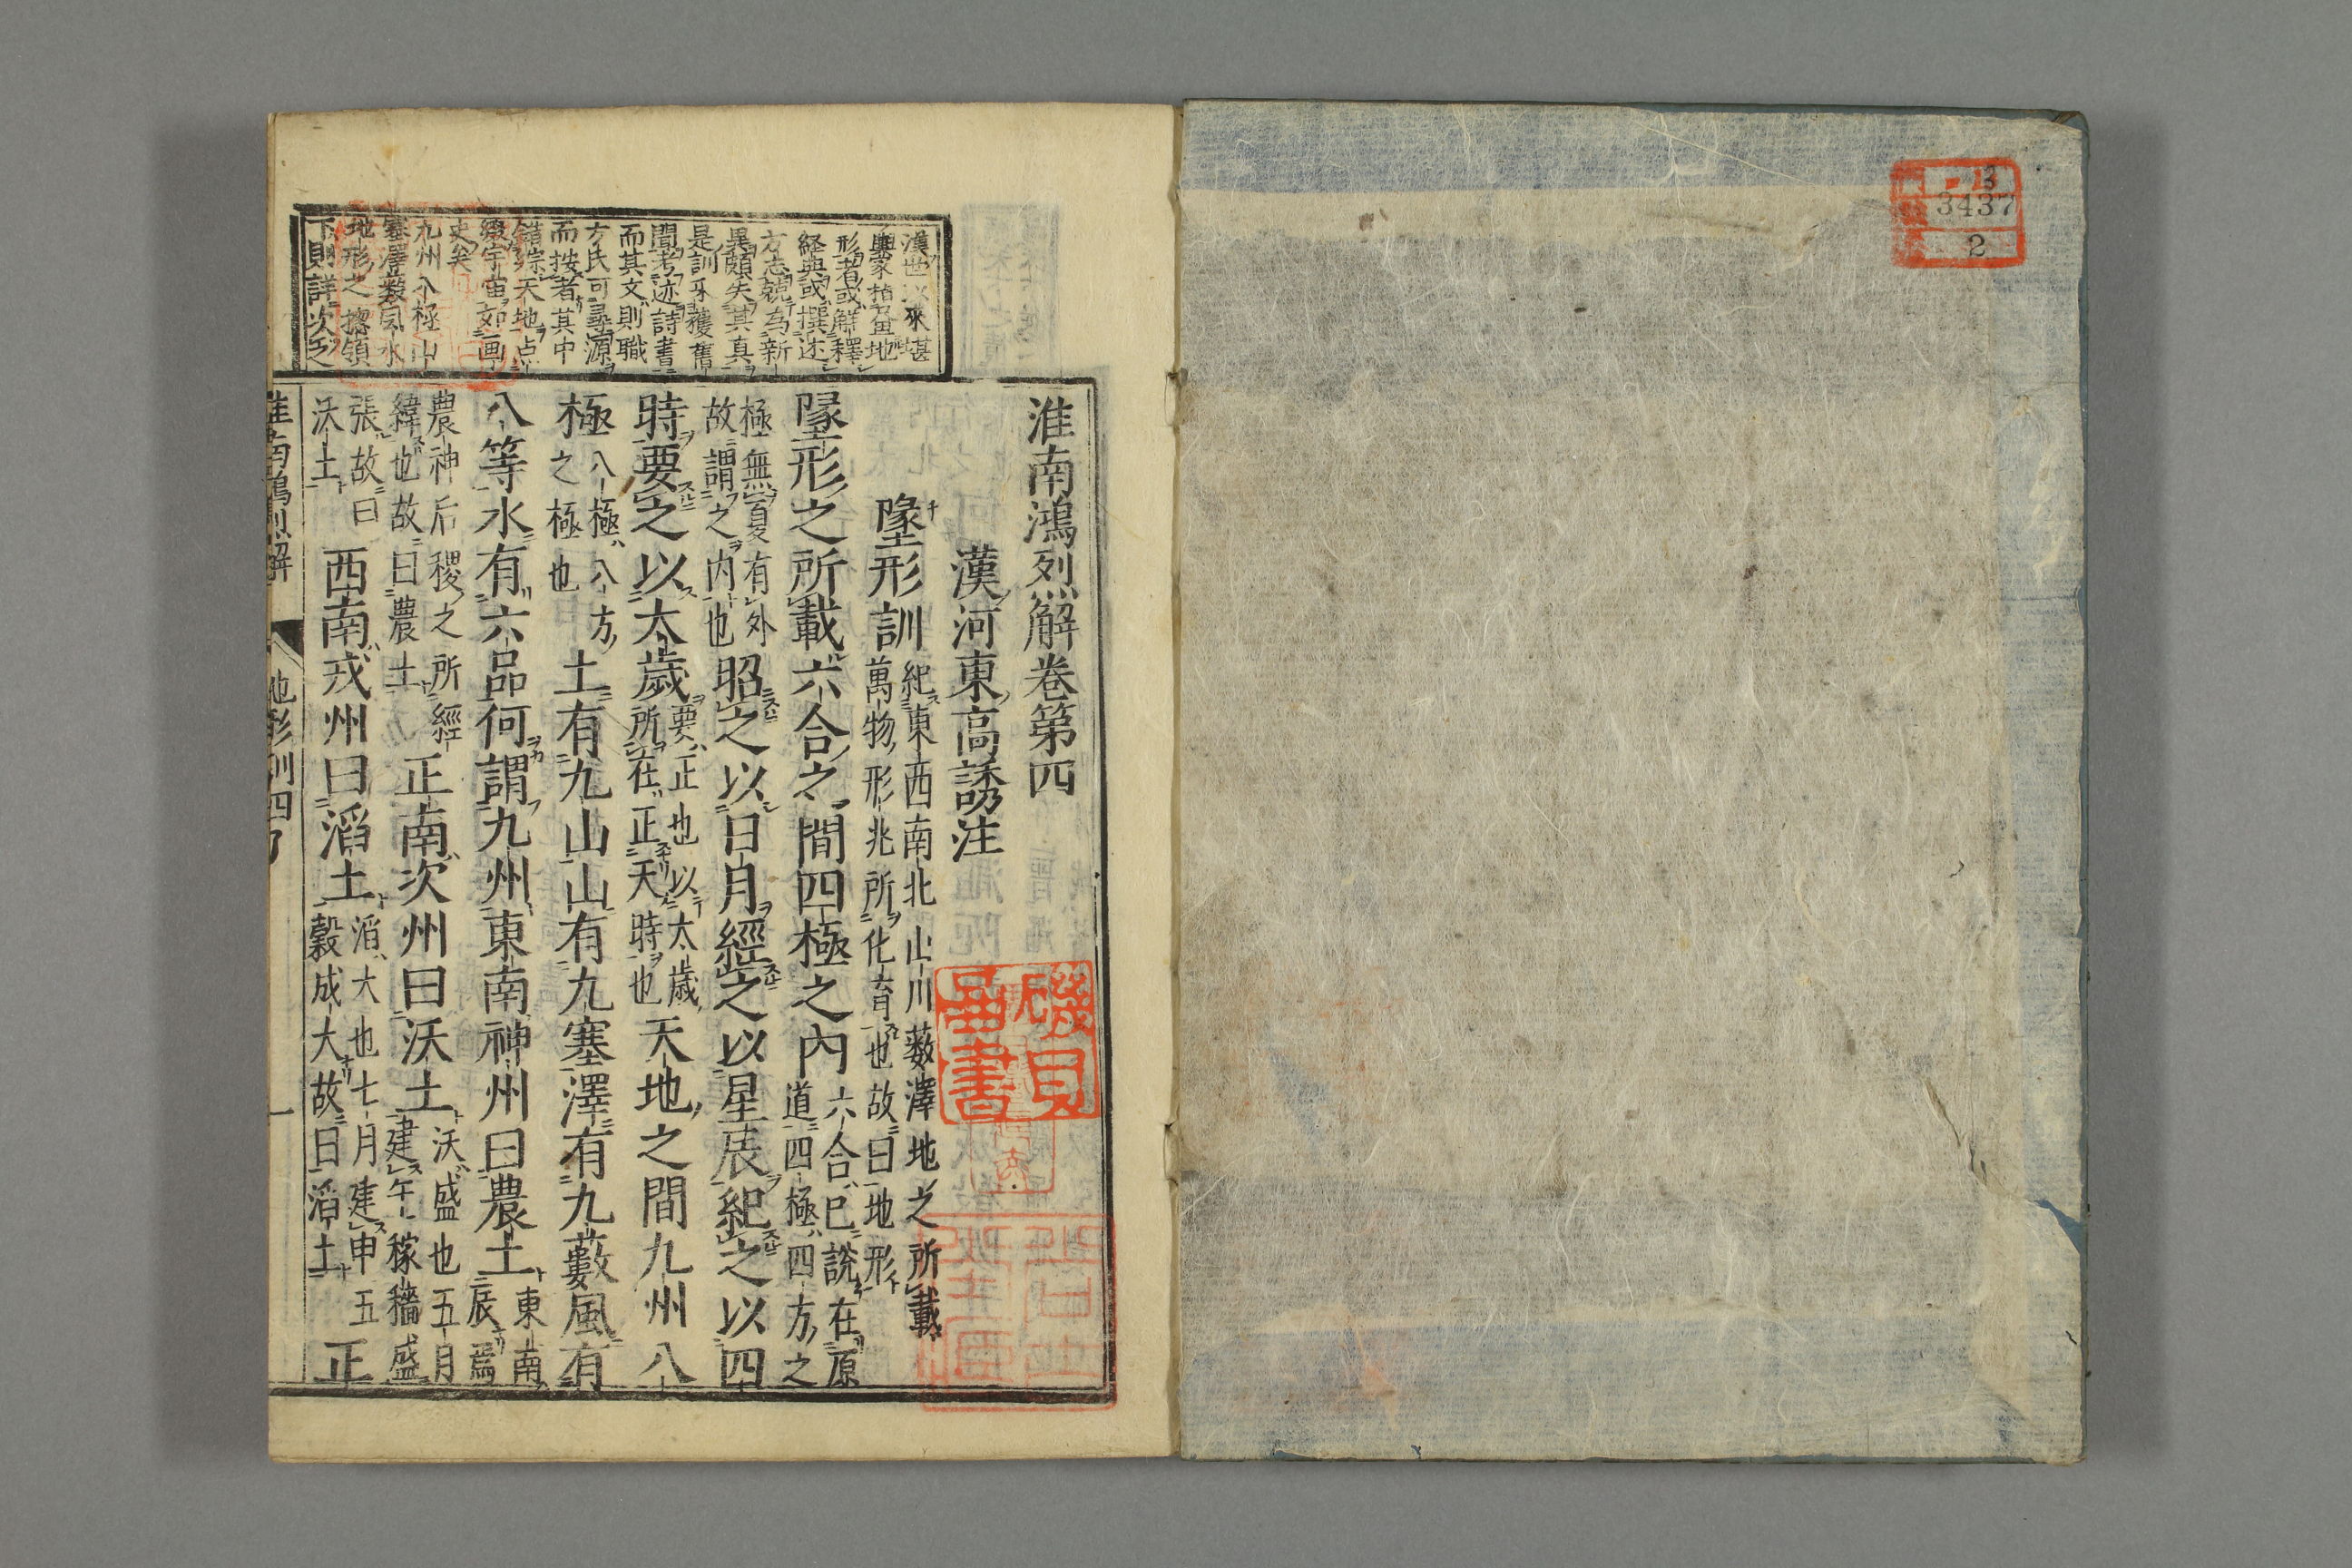 3
3437
2
漢世以來堪
輿家指畫地
形者或解釋
経典或撰述
方志競為新
異頗失其真
是訓牙獲舊
聞考迹詩書
而其文則職
方氏可尋源
而按者其中
錯綜天地点
綴宇宙如画
史矣
九州八極山
塞澤藪風水
地形之擥領
下則詳次之
淮南鴻烈解卷第四
漢河東高誘注
墬形訓
紀東西南北山川藪澤地之所載
萬物形兆所化育也故曰地形
墬形之所載六合之間四極之內
六合已說在原
道四極四方之
極無復有外
故謂之内也
昭之以日月經之以星辰紀之以四
時要之以太歲
要正也以太歲
所在正天時也
天地之間九州八
極
八極八方
之極也
土有九山山有九塞澤有九藪風有
八等水有六品何謂九州東南神州曰農土
東南
辰為
農神后稷之所經
緯也故曰農土
正南次州曰沃土
沃盛也五月
建午稼穡盛
張故曰
沃土
西南戎州曰滔土
滔大也七月建申五
穀成大故曰滔土
正
淮南鴻烈解
地形訓四
一